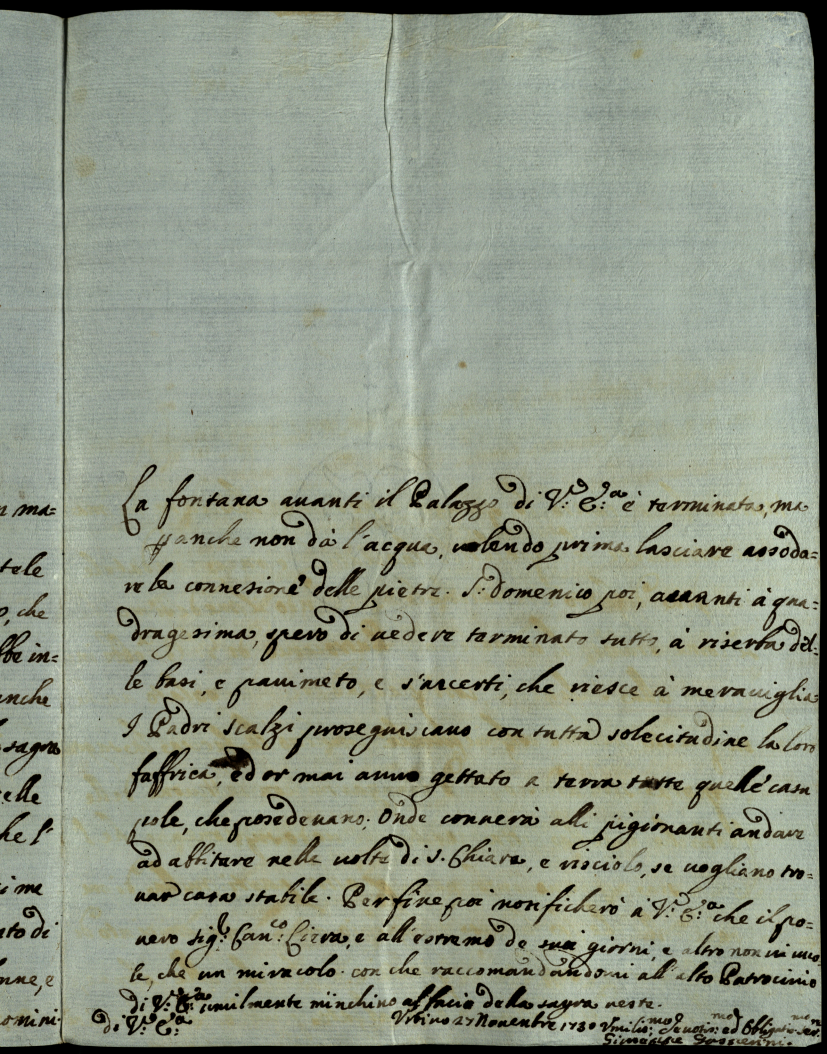 n ma=
tele
o, che
bbe in=
anche
sagra
celle
he l'
i me
ato di
nne, e
omini.
La fontana auanti il Palazzo di V.ª E.ª è terminata, ma
p anche non dà l'acqua, uolendo prima lasciare assoda=
re le connesione delle pietre. S. Domenico poi, auanti à qua=
dragesima, spero di uedere terminato tutto, à riserba del=
le basi, e pauimeto, e s'accerti, che riesce à merauiglia
I Padri scalzi proseguiscano con tutta solecitudine la loro
faffrica, ed or mai anno gettato a terra tutte quelle casu
pole, che posedeuano: Onde conuerà alli pigionanti andare
ad abbitare nelle uolte di S. Chiara, e uisciolo, se uogliano tro=
uar casa stabile. Per fine poi notificherò à V.ª E.ª che il po=
uero sig.r Can.co Cierra, e all'estremo de suoi giorni, e altro non ui uuo
le, che un miracolo. con che raccomandandomi all'alto Patrocinio
di V.ª E.ª umilmente m'inchino al facio della sagra ueste.
di V.ª E.ª
Vrbino 27 Nouenbre 1730 Vmilis.mo Deuotis.mo ed Obligatis.mo ser.
Giuseppe